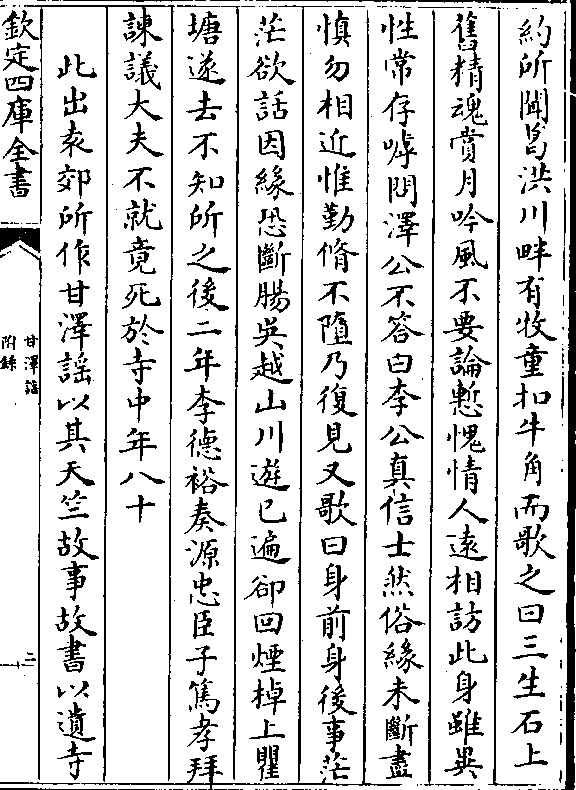 約所聞葛洪川畔有牧童扣牛角而歌之曰三生石上
舊精魂賞月吟風不要論慙愧情人逺相訪此身雖異
性常存呼問澤公不答曰李公真信士然俗緣未斷盡
慎勿相近惟勤脩不墮乃復見又歌曰身前身後事茫
茫欲話因緣恐斷腸吳越山川遊已遍卻回煙棹上瞿
塘遂去不知所之後二年李德裕奏源忠臣子篤孝拜
諫議大夫不就竟死於寺中年八十
此出袁郊所作甘澤謡以其天竺故事故書以遺寺
欽定四庫全書
甘澤謡
附錄
二